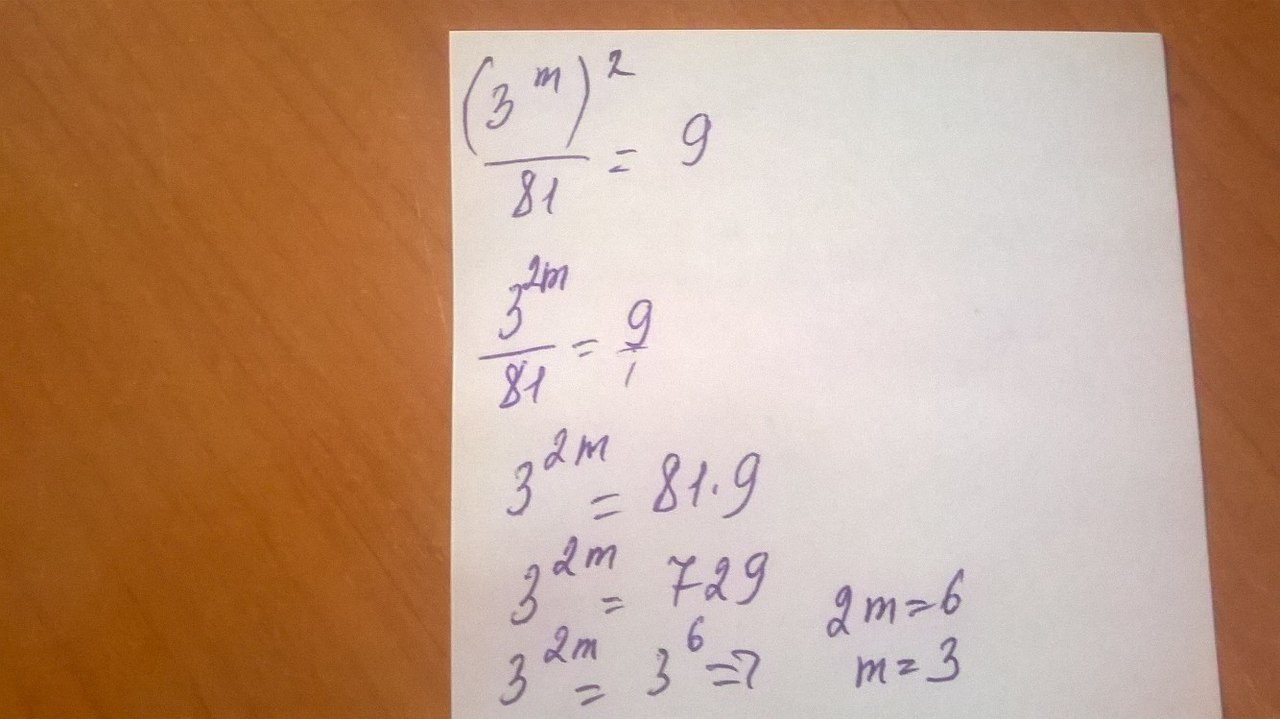 (3^m)^2 / 81 = 9
3^2m / 81 = 9 / 1
3^2m = 81·9
3^2m = 729
3^2m = 3^6 => 2m=6
m=3